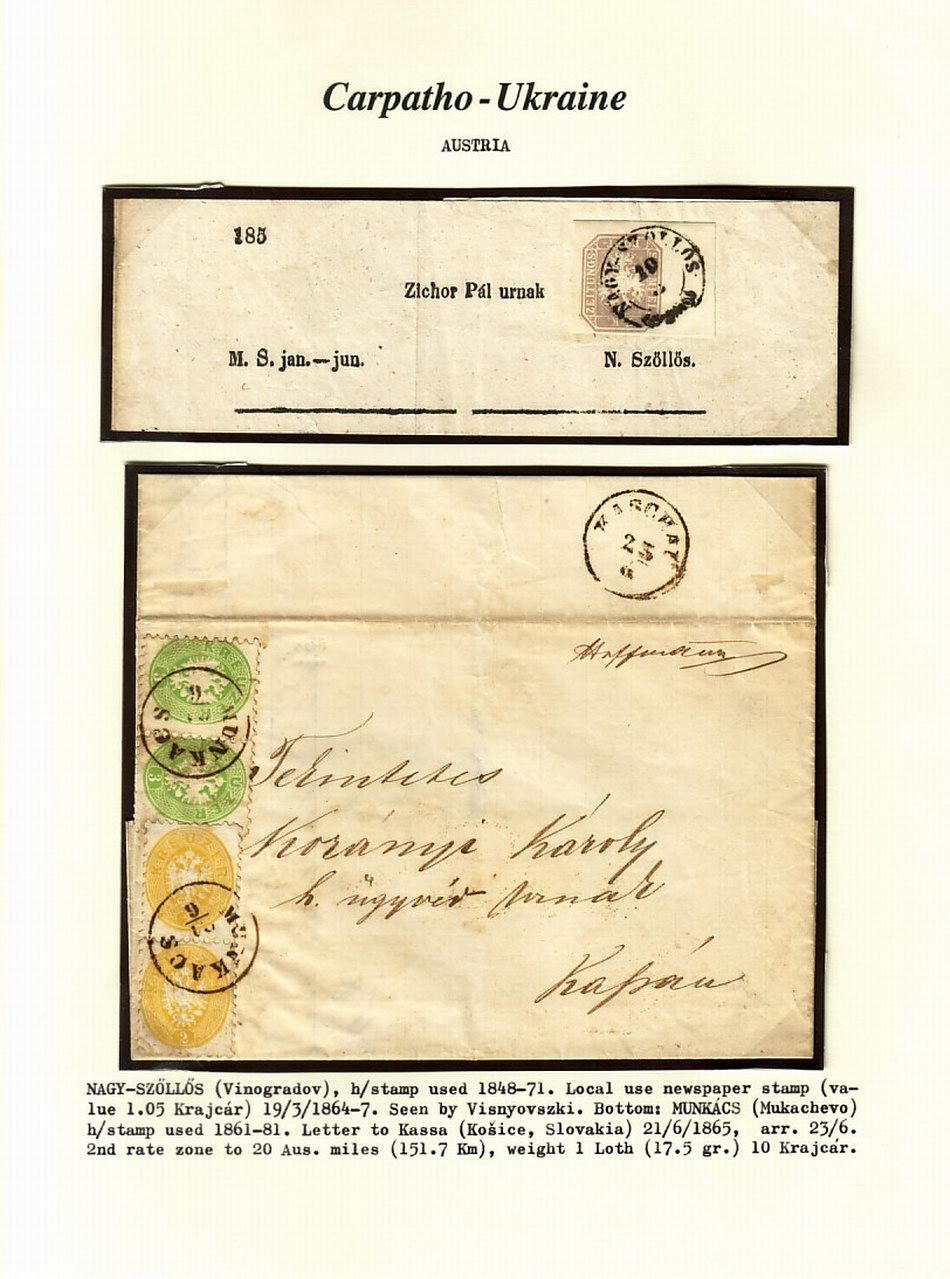 Carpatho - Ukraine
AUSTRIA
185
NAGY-SZÖLLÖS
10
ZEITUNGS
Zichor Pál urnak
M. S. jan.—jun.
N. Szöllös.
KASCHAU
23
6
Hoffmann
KREUZER
MUNKACS
3
KREUZER
Tekintetes
Korányi Károly
h. ügyvéd urnak
KREUZER
MUNKACS
21/6
Kassán
2
NAGY-SZÖLLŐS (Vinogradov), h/stamp used 1848-71. Local use newspaper stamp (va-
lue 1.05 Krajcár) 19/3/1864-7. Seen by Visnyovszki. Bottom: MUNKÁCS (Mukachevo)
h/stamp used 1861-81. Letter to Kassa (Košice, Slovakia) 21/6/1865, arr. 23/6.
2nd rate zone to 20 Aus. miles (151.7 Km), weight 1 Loth (17.5 gr.) 10 Krajcár.